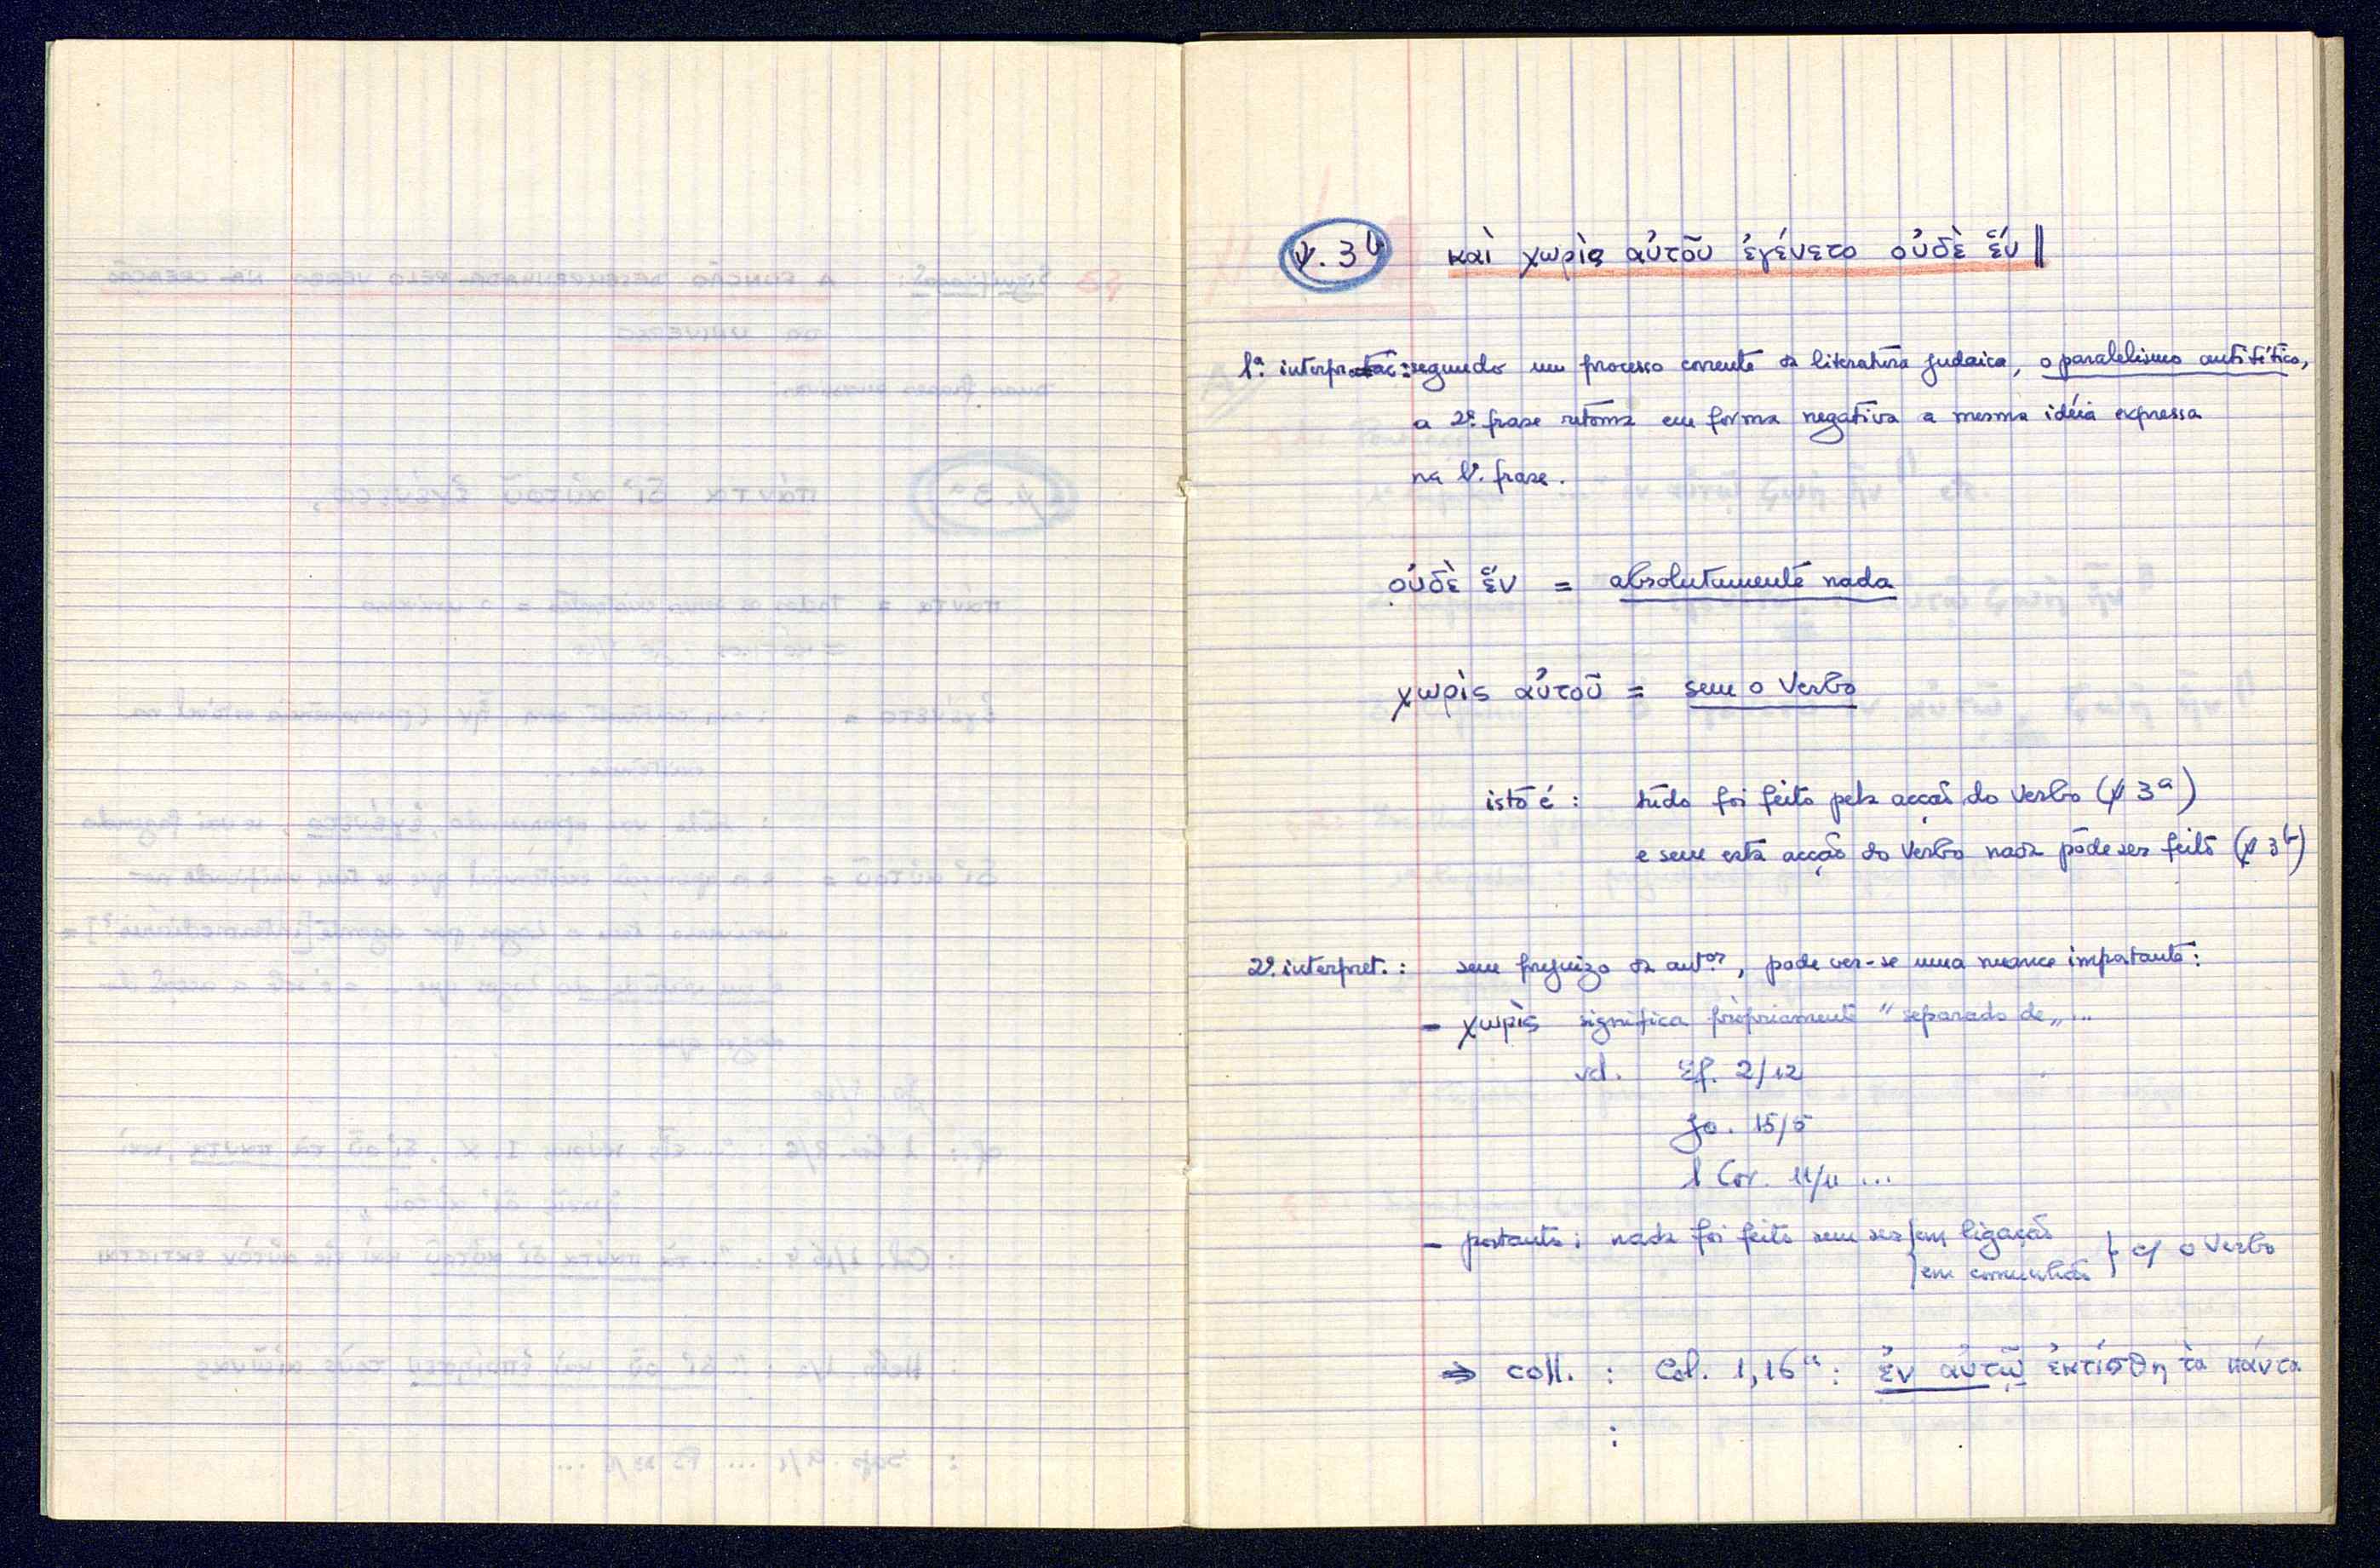 ℣. 3b καὶ χωρὶς αὐτοῦ ἐγένετο οὐδὲ ἕν ||
1ª. interpretaç: segundo um processo corrente da literatura judaica, o paralelismo antitético,
a 2ª. frase retoma em forma negativa a mesma idéia expressa
na 1ª. frase.
οὐδὲ ἕν = absolutamente nada
χωρὶς αὐτοῦ = sem o Verbo
isto é : tudo foi feito pela acção do Verbo (℣ 3a)
e sem esta acção do Verbo nada pôde ser feito (℣ 3b)
2ª. interpret. : sem prejuizo da antor., pode ver-se uma nuance importante :
- χωρὶς significa pròpriamente "separado de" ...
vd. Ef. 2/12
Jo. 15/5
1 Cor. 11/11 ...
- portanto : nada foi feito sem ser { em ligação
{ em comunhão } c/ o Verbo
⇒ coll. : Col. 1,16a : ἐν αὐτῷ ἐκτίσθη τὰ πάντα
: